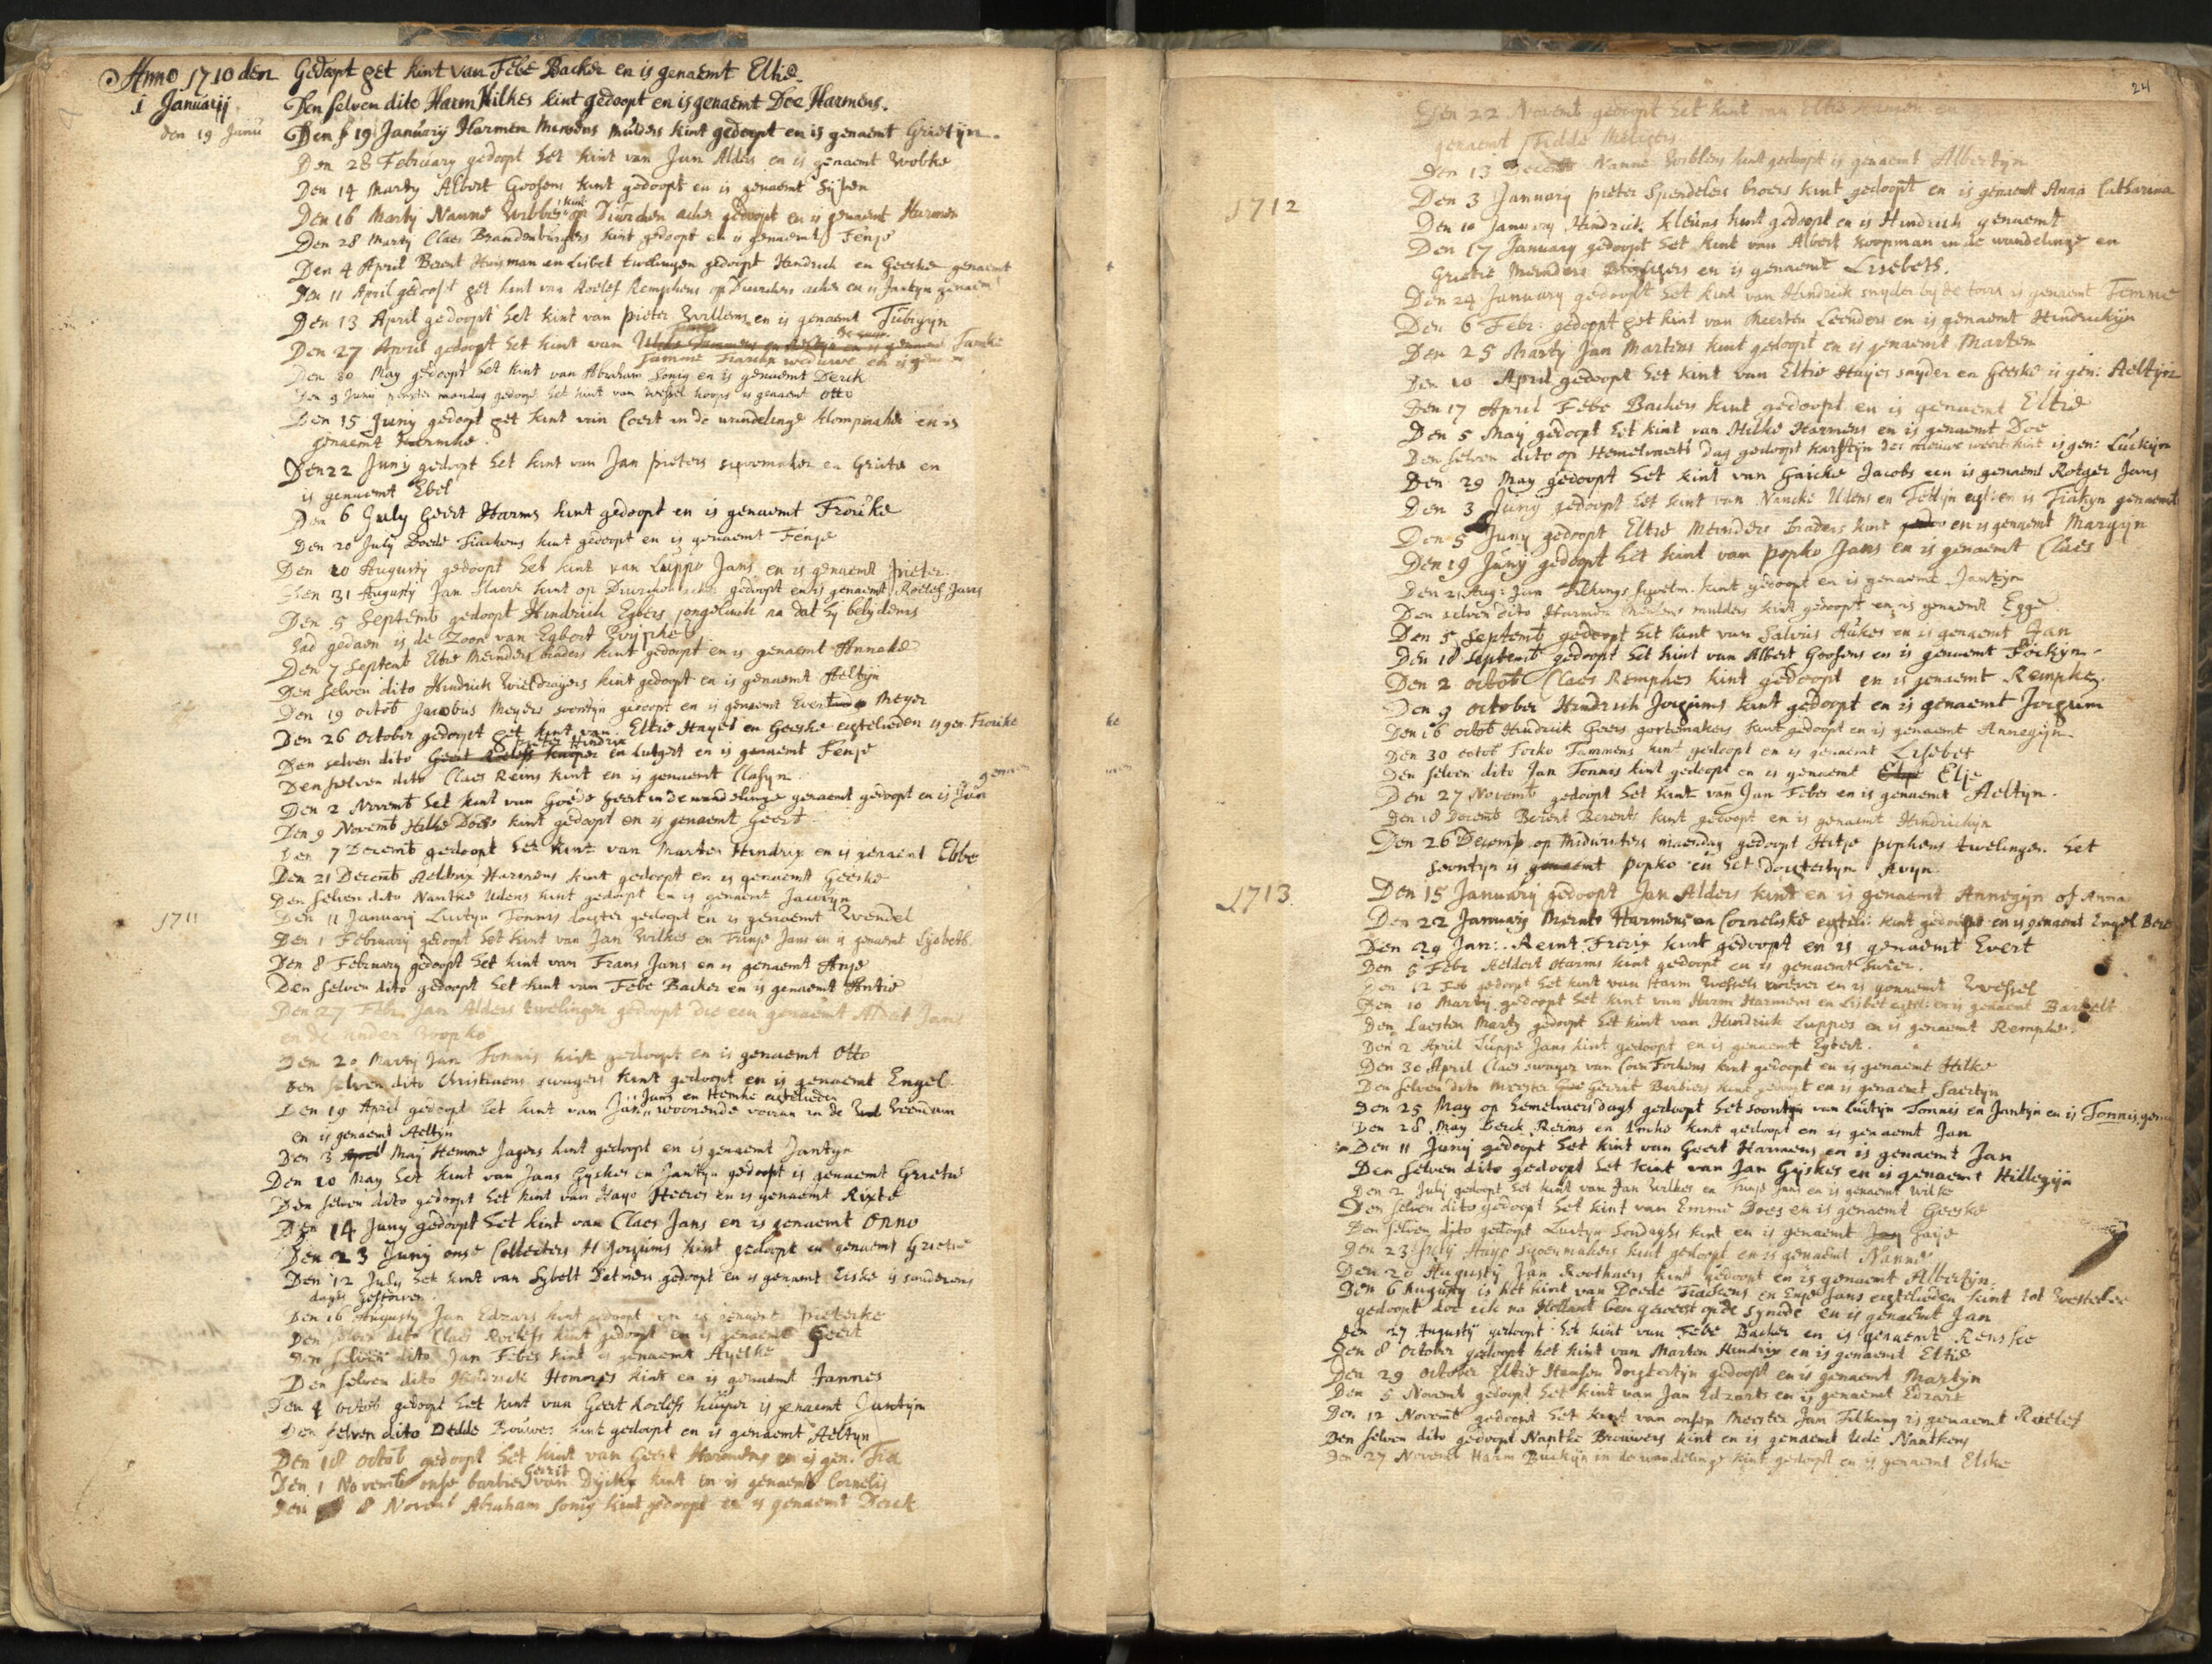 Anno 1710 den Gedoopt het kint van Febe Backer en is genaemt Eltie.
1 Januarij Den selven dito Harm Hilkes kint gedoopt en is genaemt Doe Harmens.
den 19 Janu Den 19 January Harmen Meusens mulders kint gedoopt en is genaemt Grietyn.
Den 28 February gedoopt het kint van Jan Alders en is genaemt Wobke
Den 14 Marty Albert Goosens kint gedoopt en is genaemt
Den 16 Marty Nanne Wibbes kint op Duurcken acker gedoopt en is genaemt Harmen
Den 28 Marty Claes Brandenburgers kint gedoopt en is genaemt Fenje
Den 4 April Berent Huisman en Lisbet twelingen gedoopt Hendrick en Geeske genaemt
Den 11 April gedoopt het kint van Roelef Remphens op Duurckens acker en is Jantyn genaemt
Den 13 April gedoopt het kint van pieter Willems en is genaemt
Den 27 April gedoopt het kint van
Tamme Tiarckx weduwe en is
Den 30 May gedoopt het kint van Abraham Sonig en is genaemt Derck
Den 9 Juny pinxter mandag gedoopt het kint van Wessel Koops is genaemt Otto
Den 15 Juny gedoopt het kint van Coert in de wandelinge klompmaker en is
genaemt Harmke.
Den 22 Juny gedoopt het kint van Jan pieters en Grietie en
is genaemt Ebel
Den 6 July Geert Harms kint gedoopt en is genaemt Frouke
Den 20 July Doede Tiackens kint gedoopt en is genaemt Fenje
Den 10 Augusty gedoopt het kint van Luppo Jans en is genaemt pieter.
Den 31 Augusty Jan kint op Duurcken acker gedoopt en is genaemt Roelef Jans
Den 5 Septemb gedoopt Hindrick Egbers jongeluck na dat hy belydenis
had gedaen is de zoon van Egbert
Den 7 Septemb Eltie Meinders braders kint gedoopt en is genaemt Anneke
Den selven dito Hindrick Wieldraijers kint gedoopt en is genaemt Aeltyn
Den 19 octob Jacobus Meyers soontyn gedoopt en is genaemt Evert Meyer
Den 26 October gedoopt het kint van Eltie Hayes en Geeske egtelieden is gen. Frouke
Den selven dito pieter Hindrix en Lutgert en is genaemt Fenje
Den selven dito Claes Reins kint en is genaemt Clasyn.
Den 2 Novemb het kint van Goede Geert in de wandelinge genaemt gedoopt en is Jan genaemt
Den 9 Novemb Hilke Does kint gedoopt en is genaemt Geert
Den 7 Decemb gedoopt het kint van Marten Hindrix en is genaemt Ebbe
Den 21 Decemb Harmens kint gedoopt en is genaemt Geeske
Den selven dito Nantke Udens kint gedoopt en is genaemt
1711 Den 11 January Luityn Tonnis dogter gedoopt en is genaemt Wendel
Den 1 February gedoopt het kint van Jan Wilkes en Trinje Jans en is genaemt Lysbeth.
Den 8 February gedoopt het kint van Frans Jans en is genaemt Anje
Den selven dito gedoopt het kint van Febe Backer en is genaemt Antie
Den 27 Feb. Jan Alders twelingen gedoopt die een genaemt Aldert Jans
en de ander Woopko
Den 20 Marty Jan Tonnis kint gedoopt en is genaemt Otto
Den selven dito Christiaens swagers kint gedoopt en is genaemt Engel.
Den 19 April gedoopt het kint van Jan Jans en Hemke egtelieden woonende vooran in de Veendam
en is genaemt Aeltyn
Den 3 May Hemme Jagers kint gedoopt en is genaemt Jantyn
Den 10 May het kint van Jans Gyskes en Jantyn gedoopt is genaemt Grietie
Den selven dito gedoopt het kint van Hayo Heeres en is genaemt Rixte
Den 14 Juny gedoopt het kint van Claes Jans en is genaemt Onno
Den 23 Juny onse Collecters H Jorgums kint gedoopt en genaemt Grietie
Den 12 July het kint van Sybelt Detmers gedoopt en is genaemt Eiske is
dages gestorven.
Den 16 Augusty Jan Edzars kint gedoopt en is genaemt pieterke
Den selven dito Claes Roelefs kint gedoopt en is genaemt Geert
Den selven dito Jan Febes kint is genaemt Ayelke
Den selven dito Hindrick Hommes kint en is genaemt Jannes
Den 4 octob gedoopt het kint van Geert Roelefs kuiper is genaemt Jantyn
Den selven dito Dedde Bouwes kint gedoopt en is genaemt Aeltyn
Den 18 octob gedoopt het kint van Geert Harmens en is gen. Tia
Den 1 Novemb onse barbier Gerrit van Dijck kint en is genaemt Cornelis
Den 8 Novemb Abraham Sonig kint gedoopt en is genaemt Derck
24
Den 22 Novemb gedoopt het kint van Eltie Harmen en
genaemt Fidde Meuger
Den 13 Decemb Nanne Wobkens kint gedoopt is genaemt Albertyn
1712 Den 3 January pieter Spendelers broers kint gedoopt en is genaemt Anna Catharina
Den 10 January Hindrick Kleuns kint gedoopt en is Hindrick genaemt
Den 17 January gedoopt het kint van Albert Koopman in de wandelinge en
Grietie Meinders en is genaemt Lisebeth.
Den 24 January gedoopt het kint van Hindrick snyder by de toorn is genaemt Temme
Den 6 Febr: gedoopt het kint van Meerten Leenders en is genaemt Hindrickyn
Den 25 Marty Jan Martens kint gedoopt en is genaemt Marten
Den 10 April gedoopt het kint van Eltie Hayes snyder en Geeske is gen: Aeltyn
Den 17 April Febe Backers kint gedoopt en is genaemt Eltie
Den 5 May gedoopt het kint van Hilke Harmens en is genaemt Doe
Den selven dito op Hemelvaerts dag gedoopt Karstyn der nieuwe weert kint is gen: Luckyn
Den 29 May gedoopt het kint van Gaicke Jacobs een is genaemt Rotger Jans
Den 3 Juny gedoopt het kint van Nancke Udens en Tettyn egt: en is Tiakyn genaemt
Den 5 Juny gedoopt Eltie Meinders braders kint en is genaemt Margyn
Den 19 Juny gedoopt het kint van popko Jans en is genaemt Claes
Den 21 Aug: Jan Tilkings kint gedoopt en is genaemt Jantyn
Den selven dito Harmen Meusens mulders kint gedoopt en is genaemt Egge
Den 5 Septemb gedoopt het kint van Salvius Aukes en is genaemt Jan
Den 18 Septemb gedoopt het kint van Albert Goosens en is genaemt Fockyn.
Den 2 octob Claes Remphes kint gedoopt en is genaemt Rempke.
Den 9 October Hindrick Jorgums kint gedoopt en is genaemt Jorgum
Den 16 octob Hindrick Geers gortemakers kint gedoopt en is genaemt Annegyn.
Den 30 octob Focko Tammens kint gedoopt en is genaemt Lisebet
Den selven dito Jan Tonnis kint gedoopt en is genaemt Elje
Den 27 Novemb gedoopt het kint van Jan Febes en is genaemt Aeltyn.
Den 18 Decemb Berent Berents kint gedoopt en is genaemt Hindrickyn
Den 26 Decemb op Midwinters maendag gedoopt Hitje pophens twelingen het
soontyn is genaemt popko en het dogtertyn Avyn.
1713. Den 15 January gedoopt Jan Alders kint en is genaemt Annegyn of Anna
Den 22 January Meint Harmens en Corneliske egteli: kint gedoopt en is genaemt Engel Bere
Den 29 Jan: Reint Frerix kint gedoopt en is genaemt Evert
Den 5 Febr Aeldert Harms kint gedoopt en is genaemt Swier.
Den 12 Feb gedoopt het kint van Harm Wessels wever en is genaemt Wessel
Den 10 Marty gedoopt het kint van Harm Harmens en Lisbet egteli: en is genaemt Barelt
Den Laesten Marty gedoopt het kint van Hindrick Luppes en is genaemt Rempke.
Den 2 April Luppe Jans kint gedoopt en is genaemt Egbert.
Den 30 April Claes swager van Coen Fockens kint gedoopt en is genaemt Hilke
Den selven dito Meester Gerrit Barbiers kint gedoopt en is genaemt Saertyn
Den 25 May op hemelvaersdagh gedoopt het soontyn van Luityn Tonnis en Jantyn en is Tonnis gen
Den 28 May Derck Reins en Imke kint gedoopt en is genaemt Jan
Den 11 Juny gedoopt het kint van Geert Harmens en is genaemt Jan
Den selven dito gedoopt het kint van Jan Gyskes en is genaemt Hillegyn
Den 2 July gedoopt het kint van Jan Wilkes en Trinje Jans en is genaemt Wilke
Den selven dito gedoopt het kint van Emme Does en is genaemt Geeske
Den selven dito gedoopt Luityn Sondaghs kint en is genaemt Jan Faije
Den 23 July Hayo scoenmakers kint gedoopt en is genaemt Nanne
Den 20 Augusty Jan Roothaers kint gedoopt en is genaemt Albertyn.
Den 6 Augusty is het kint van Doede Tiackens en Enje Jans egtelieden kint tot Westerlee
gedoopt doe ick na Hollant ben geweest op de synode en is genaemt Jan
Den 27 Augusty gedoopt het kint van Febe Backer en is genaemt Renske
Den 8 October gedoopt het kint van Marten Hindrix en is genaemt Eltie
Den 29 October Eltie Hansen dogtertyn gedoopt en is genaemt Martyn
Den 5 Novemb gedoopt het kint van Jan Edzarts en is genaemt Edzart
Den 12 Novemb gedoopt het kint van onsen Meester Jan Tilking is genaemt Roelef
Den selven dito gedoopt Nantke Brouwers kint en is genaemt Ude Nantkens
Den 27 Novemb Harm Buckyn in de wandelinge kint gedoopt en is genaemt Elske